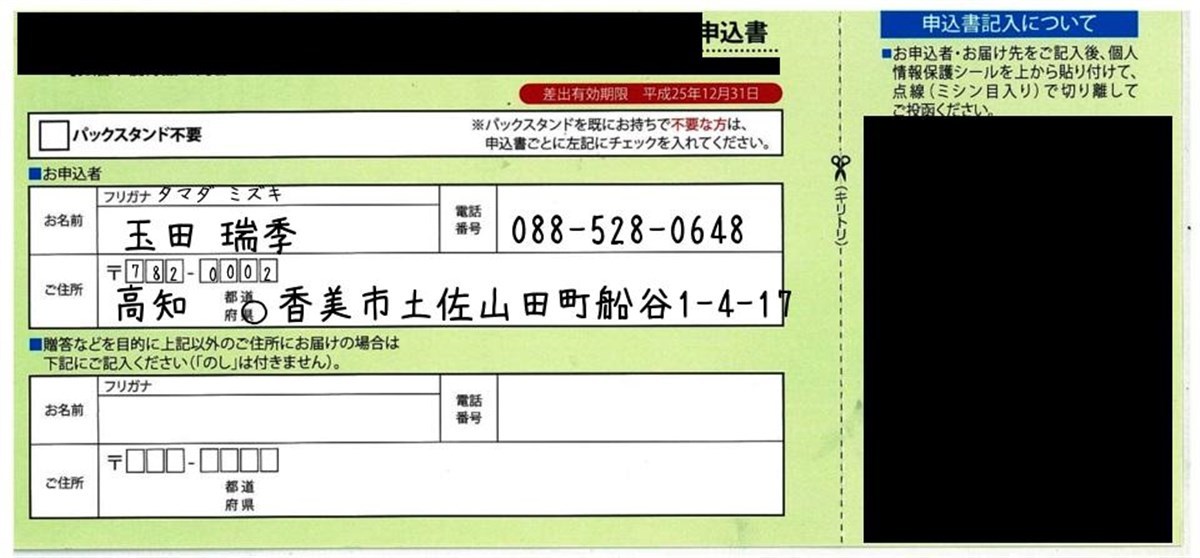 申込書
差出有効期限 平成25年12月31日
パックスタンド不要
※パックスタンドを既にお持ちで不要な方は、
申込書ごとに左記にチェックを入れてください。
■お申込者
お名前
フリガナ タマダ ミズキ
玉田 瑞季
電話
番号
088-528-0648
ご住所
〒782-0002
高知 都道
府県 香美市土佐山田町船谷1-4-17
■贈答などを目的に上記以外のご住所にお届けの場合は
下記にご記入ください(「のし」は付きません)。
お名前
フリガナ
電話
番号
ご住所
〒 -
都道
府県
(キリトリ)
申込書記入について
■お申込者・お届け先をご記入後、個人
情報保護シールを上から貼り付けて、
点線(ミシン目入り)で切り離して
ご投函ください。